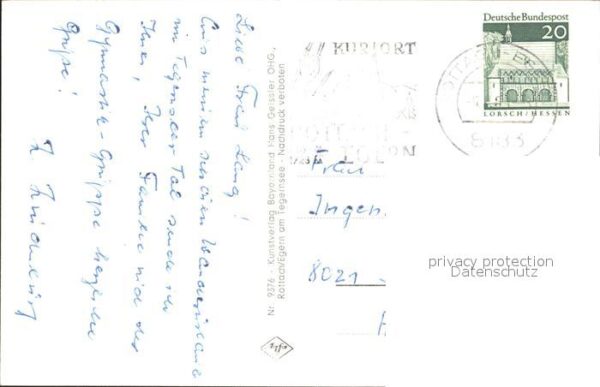 Liebe Frau Lang!
Aus meinem schönen Wanderurlaub
im Tegernseer Tal sende ich
Ihnen, Ihrer Familie und der
Gymnastik-Gruppe herzliche
Grüße!
Nr. 9376 - Kunstverlag Bayerwand Hans Geissler OHG,
Rottach/Egern am Tegernsee - Nachdruck verboten
KURORT
ROTTACH-
EGERN
8183
Deutsche Bundespost
20
LORSCH/HESSEN
Frau
Ingen.
8021
privacy protection
Datenschutz